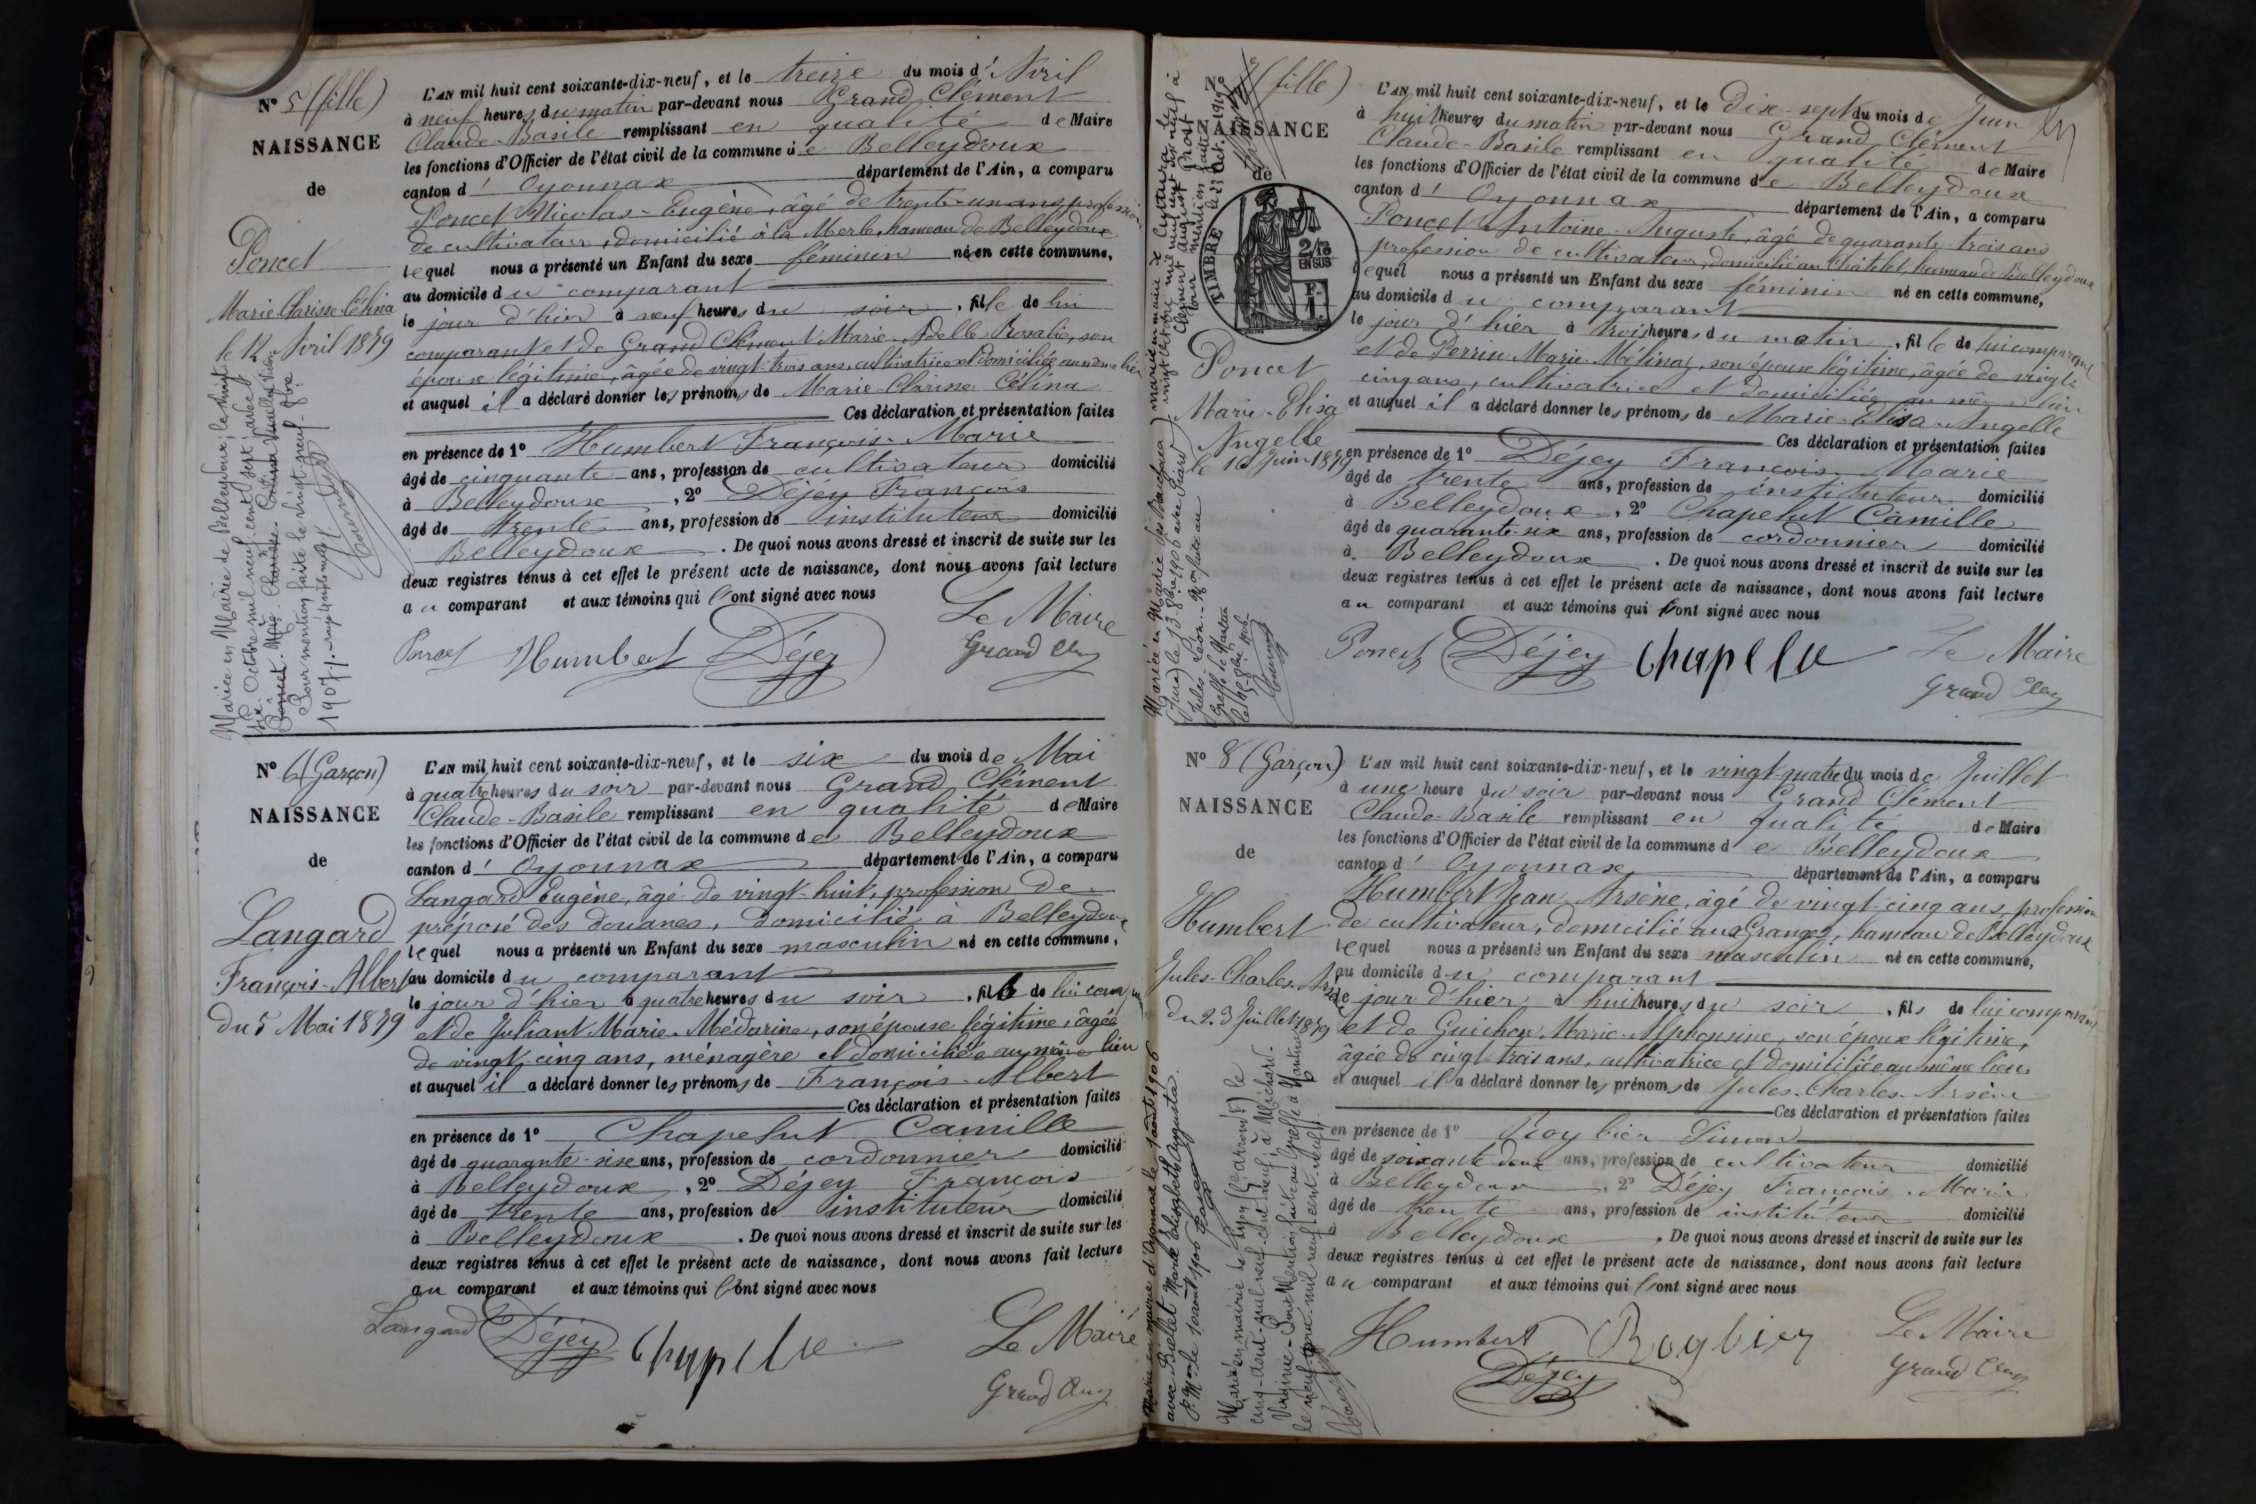 N° 5 (fille)
NAISSANCE
de
Poncet
Marie Clarisse Célina
le 12 Avril 1879
L'AN mil huit cent soixante-dix-neuf, et le treize du mois d'Avril
à neuf heures du matin par-devant nous Grand Clément
Claude-Basile remplissant en qualité de Maire
les fonctions d'Officier de l'état civil de la commune de Belleydoux
canton d'Oyonnax département de l'Ain, a comparu
Poncet Nicolas-Eugène, âgé de trente-un ans, profession
de cultivateur, domicilié à la Merle, hameau de Belleydoux
lequel nous a présenté un Enfant du sexe féminin né en cette commune,
au domicile du comparant
le jour d'hier à neuf heures du soir, fille de lui
comparant et de Grand Clément Marie-Adelle Rosalie, son
épouse légitime, âgée de vingt-trois ans, cultivatrice et domiciliée au même lieu
et auquel il a déclaré donner les prénoms de Marie-Clarisse Célina
Ces déclaration et présentation faites
en présence de 1° Humbert François-Marie
âgé de cinquante ans, profession de cultivateur domicilié
à Belleydoux, 2° Déjey François
âgé de trente ans, profession de instituteur domicilié
Belleydoux. De quoi nous avons dressé et inscrit de suite sur les
deux registres tenus à cet effet le présent acte de naissance, dont nous avons fait lecture
au comparant et aux témoins qui l'ont signé avec nous
Le Maire
Poncet Humbert Déjey Grand Clém
Mariée en Mairie de Belleydoux, le huit
Octobre mil neuf cent sept, avec
Pour mention faite le vingt-neuf 8bre
1907.
N° 6 (Garçon)
NAISSANCE
de
Langard
François-Albert
du 5 Mai 1879
L'AN mil huit cent soixante-dix-neuf, et le six du mois de Mai
à quatre heures du soir par-devant nous Grand Clément
Claude-Basile remplissant en qualité de Maire
les fonctions d'Officier de l'état civil de la commune de Belleydoux
canton d'Oyonnax département de l'Ain, a comparu
Langard Eugène, âgé de vingt-huit, profession de
préposé des douanes, domicilié à Belleydoux
lequel nous a présenté un Enfant du sexe masculin né en cette commune,
au domicile du comparant
le jour d'hier à quatre heures du soir, fils de lui comparant
et de Juliant Marie-Médarine, son épouse légitime, âgée
de vingt-cinq ans, ménagère et domiciliée au même lieu
et auquel il a déclaré donner les prénoms de François-Albert
Ces déclaration et présentation faites
en présence de 1° Chapelut Camille
âgé de quarante-six ans, profession de cordonnier domicilié
à Belleydoux, 2° Déjey François
âgé de trente ans, profession de instituteur domicilié
à Belleydoux. De quoi nous avons dressé et inscrit de suite sur les
deux registres tenus à cet effet le présent acte de naissance, dont nous avons fait lecture
au comparant et aux témoins qui l'ont signé avec nous
Langard Déjey Chapelu Le Maire
Grand Clém
Marié en mairie d'Oyonnax le 1 août 1906
avec Buellet Marie Elisabeth Augusta.
(fille)
NAISSANCE
de
TIMBRE
2/10
EN SUS
Poncet
Marie-Elisa
Angelle
le 16 Juin 1879
L'AN mil huit cent soixante-dix-neuf, et le dix-sept du mois de Juin
à huit heures du matin par-devant nous Grand Clément
Claude-Basile remplissant en qualité de Maire
les fonctions d'Officier de l'état civil de la commune de Belleydoux
canton d'Oyonnax département de l'Ain, a comparu
Poncet Antoine-Auguste, âgé de quarante-trois ans
profession de cultivateur, domicilié au Châtelet, hameau de Belleydoux
lequel nous a présenté un Enfant du sexe féminin né en cette commune,
au domicile du comparant
le jour d'hier à trois heures du matin, fille de lui comparant
et de Perrin Marie-Mélinaz, son épouse légitime, âgée de vingt
cinq ans, cultivatrice et domiciliée au même lieu
et auquel il a déclaré donner les prénoms de Marie-Elisa-Angelle
Ces déclaration et présentation faites
en présence de 1° Déjey François-Marie
âgé de trente ans, profession de instituteur domicilié
à Belleydoux, 2° Chapelut Camille
âgé de quarante-six ans, profession de cordonnier domicilié
à Belleydoux. De quoi nous avons dressé et inscrit de suite sur les
deux registres tenus à cet effet le présent acte de naissance, dont nous avons fait lecture
au comparant et aux témoins qui l'ont signé avec nous
Poncet Déjey Chapelu Le Maire
Grand Clém
N° 8 (Garçon)
NAISSANCE
de
Humbert
Jules-Charles-Arsène
du 23 Juillet 1879
L'AN mil huit cent soixante-dix-neuf, et le vingt-quatre du mois de Juillet
à une heure du soir par-devant nous Grand Clément
Claude-Basile remplissant en qualité de Maire
les fonctions d'Officier de l'état civil de la commune de Belleydoux
canton d'Oyonnax département de l'Ain, a comparu
Humbert Jean-Arsène, âgé de vingt-cinq ans, profession
de cultivateur, domicilié aux Granges, hameau de Belleydoux
lequel nous a présenté un Enfant du sexe masculin né en cette commune,
au domicile du comparant
le jour d'hier à huit heures du soir, fils de lui comparant
et de Guichon Marie-Alphonsine, son épouse légitime,
âgée de vingt-trois ans, cultivatrice et domiciliée au même lieu
et auquel il a déclaré donner les prénoms de Jules-Charles-Arsène
Ces déclaration et présentation faites
en présence de 1° Roybier Simon
âgé de soixante-deux ans, profession de cultivateur domicilié
à Belleydoux, 2° Déjey François-Marie
âgé de trente ans, profession de instituteur domicilié
à Belleydoux. De quoi nous avons dressé et inscrit de suite sur les
deux registres tenus à cet effet le présent acte de naissance, dont nous avons fait lecture
au comparant et aux témoins qui l'ont signé avec nous
Humbert Roybier Le Maire
Déjey Grand Clém
Marié en mairie de Lyon